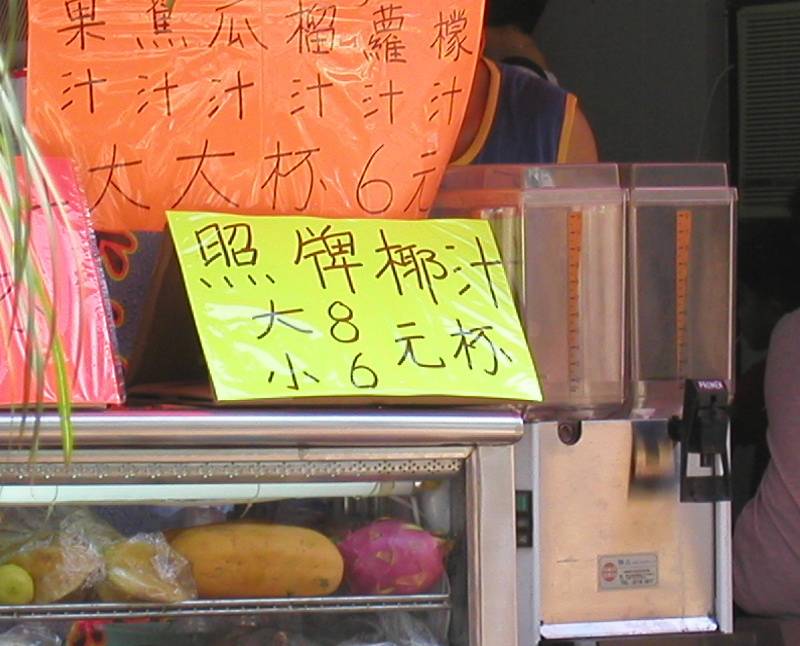 果 蕉 瓜 榴 蘿 檬
汁 汁 汁 汁 汁 汁
大 大 杯 6 元
照 牌 椰 汁
大 8
小 6 元 杯